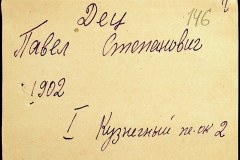 146
Дец
Павел Степанович
1902
I Кузнечный пе-ок 2